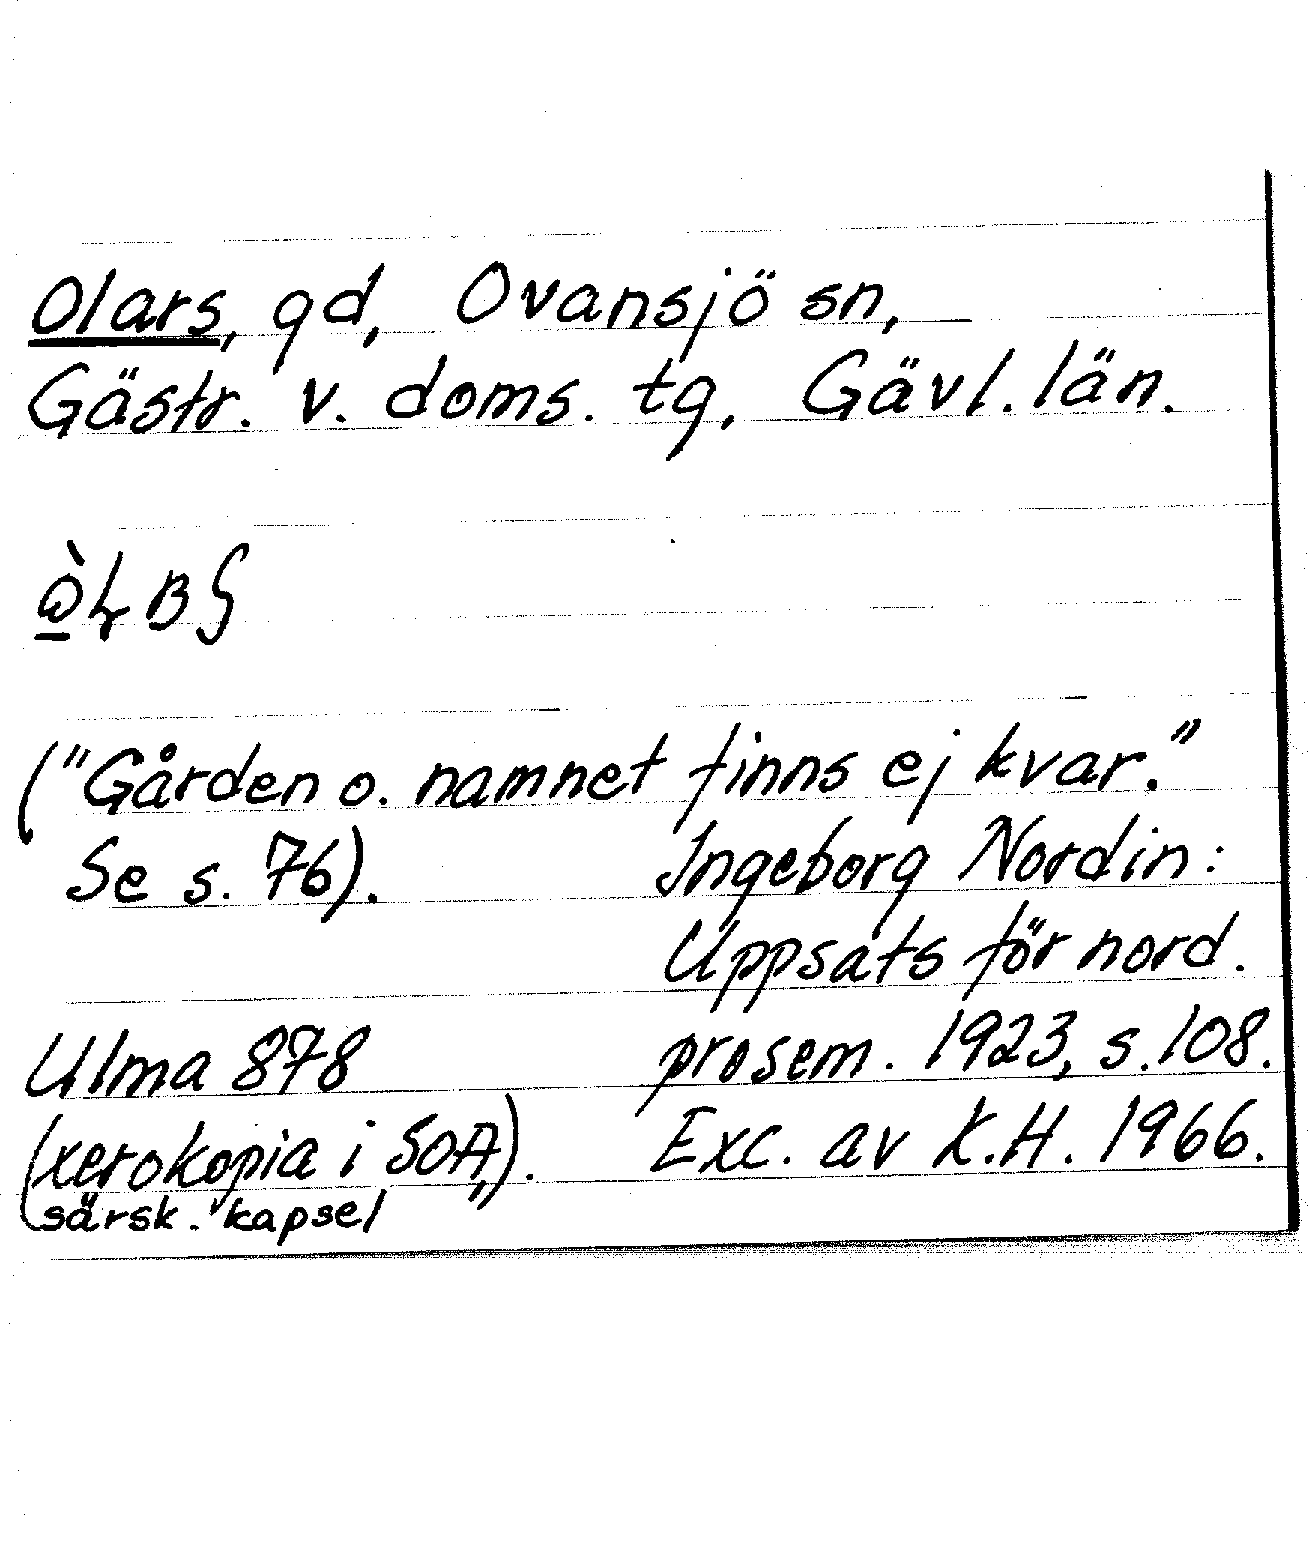 Olars, gd, Ovansjö sn,
Gästr. v. doms. tg, Gävl. län.
("Gården o. namnet finns ej kvar."
Se s. 76).
Ingeborg Nordin:
Uppsats för nord.
prosem. 1923, s. 108.
Exc. av K.H. 1966.
Ulma 878
(xerokopia i SOA,).
särsk. kapsel